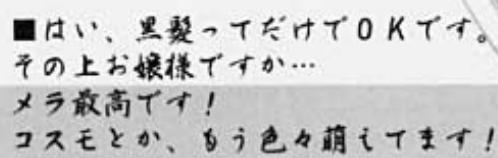 ■はい、黒髪ってだけでOKです。
その上お嬢様ですか…
メラ最高です！
コスモとか、もう色々萌えてます！